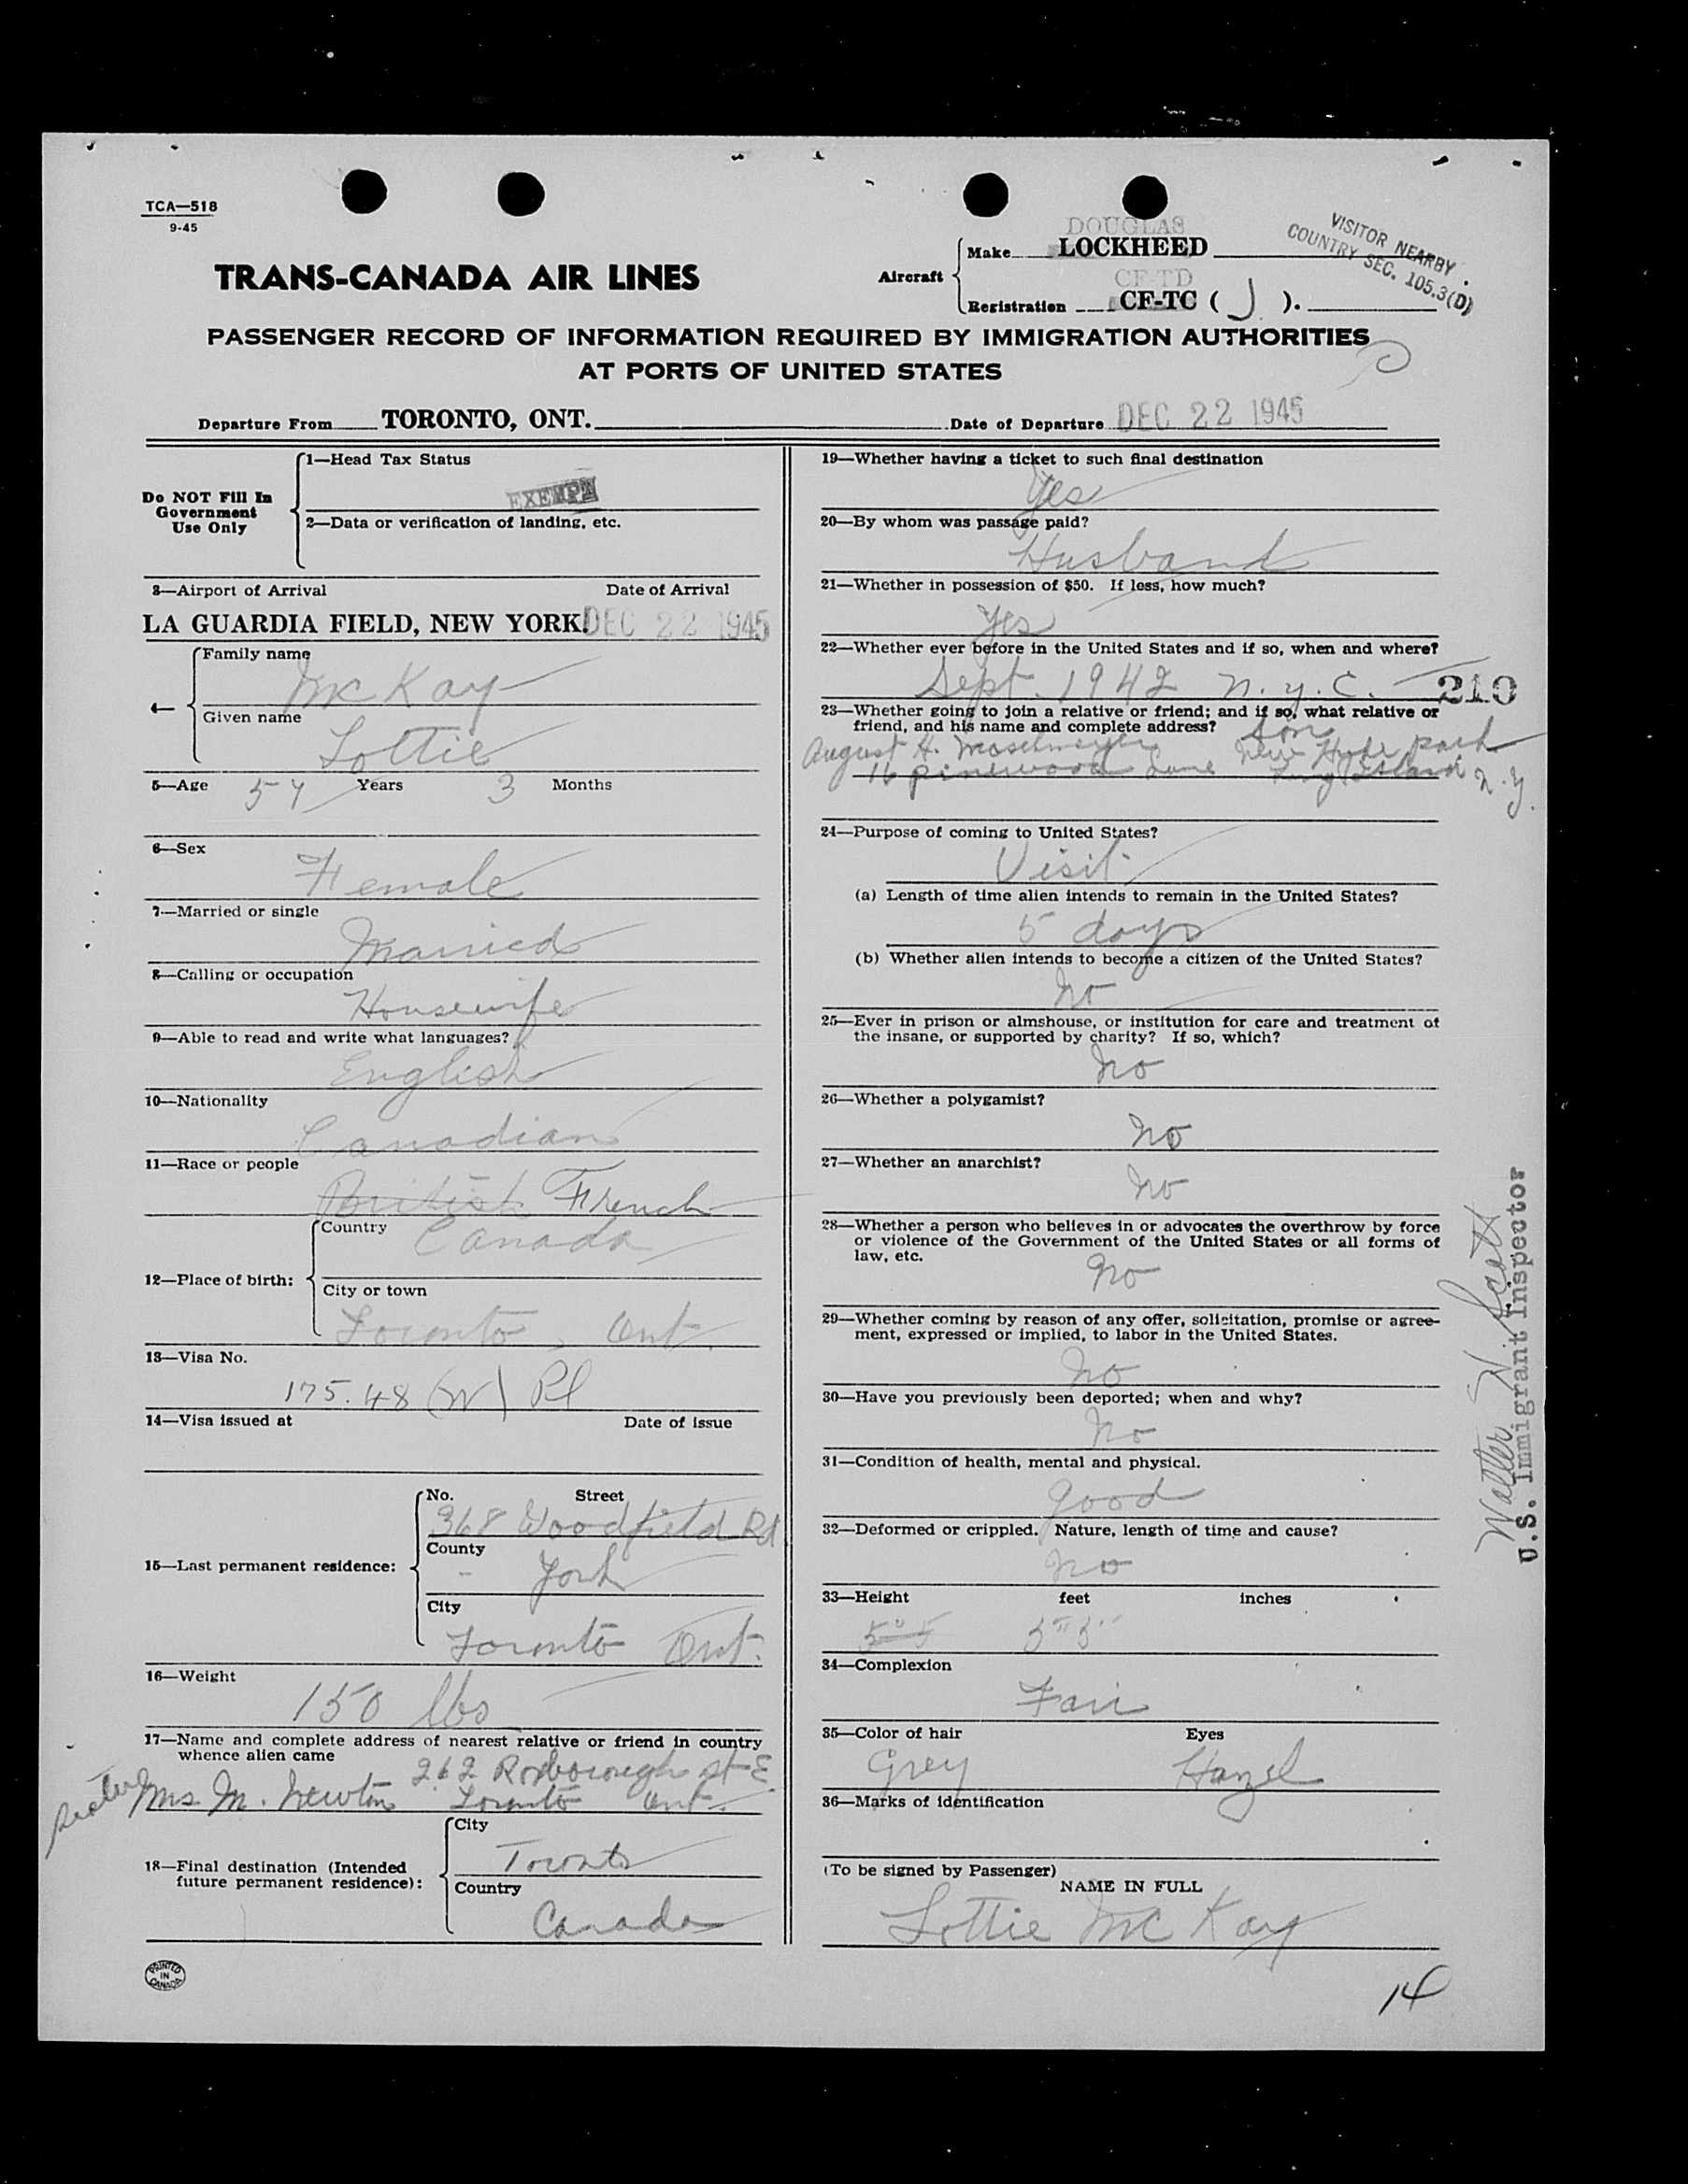 TCA—518
9-45
TRANS-CANADA AIR LINES
Aircraft
DOUGLAS
Make LOCKHEED
CF-TD
Registration CF-TC ( J ).
VISITOR NEARBY
COUNTRY SEC. 105.3(D)
PASSENGER RECORD OF INFORMATION REQUIRED BY IMMIGRATION AUTHORITIES
AT PORTS OF UNITED STATES
Departure From TORONTO, ONT. Date of Departure DEC 22 1945
Do NOT Fill In
Government
Use Only
1—Head Tax Status
EXEMPT
2—Data or verification of landing, etc.
3—Airport of Arrival Date of Arrival
LA GUARDIA FIELD, NEW YORK. DEC 22 1945
4—
Family name
McKay
Given name
Lottie
5—Age 54 Years 3 Months
6—Sex
Female
7—Married or single
Married
8—Calling or occupation
Housewife
9—Able to read and write what languages?
English
10—Nationality
Canadian
11—Race or people
British French
12—Place of birth:
Country
Canada
City or town
Toronto, Ont.
13—Visa No.
175.48 (W) Pl
14—Visa issued at Date of issue
15—Last permanent residence:
No. Street
368 Woodfield Rd
County
- York
City
Toronto Ont.
16—Weight
150 lbs
17—Name and complete address of nearest relative or friend in country
whence alien came
262 Roxborough St E
sister Mrs M. Newton Toronto Ont.
18—Final destination (Intended
future permanent residence):
City
Toronto
Country
Canada
PRINTED
IN
CANADA
19—Whether having a ticket to such final destination
Yes
20—By whom was passage paid?
Husband
21—Whether in possession of $50. If less, how much?
Yes
22—Whether ever before in the United States and if so, when and where?
Sept. 1942 N.Y.C.
210
23—Whether going to join a relative or friend; and if so, what relative or
friend, and his name and complete address? Son
August H. New Hyde Park
16 Pinewood Lane Long Island N.Y.
24—Purpose of coming to United States?
Visit
(a) Length of time alien intends to remain in the United States?
5 days
(b) Whether alien intends to become a citizen of the United States?
No
25—Ever in prison or almshouse, or institution for care and treatment of
the insane, or supported by charity? If so, which?
No
26—Whether a polygamist?
No
27—Whether an anarchist?
No
28—Whether a person who believes in or advocates the overthrow by force
or violence of the Government of the United States or all forms of
law, etc.
No
29—Whether coming by reason of any offer, solicitation, promise or agree-
ment, expressed or implied, to labor in the United States.
No
30—Have you previously been deported; when and why?
No
31—Condition of health, mental and physical.
Good
32—Deformed or crippled. Nature, length of time and cause?
No
33—Height feet inches
34—Complexion
Fair
35—Color of hair Eyes
Grey Hazel
36—Marks of identification
(To be signed by Passenger)
NAME IN FULL
Lottie McKay
14
Walter N Scott
U.S. Immigrant Inspector